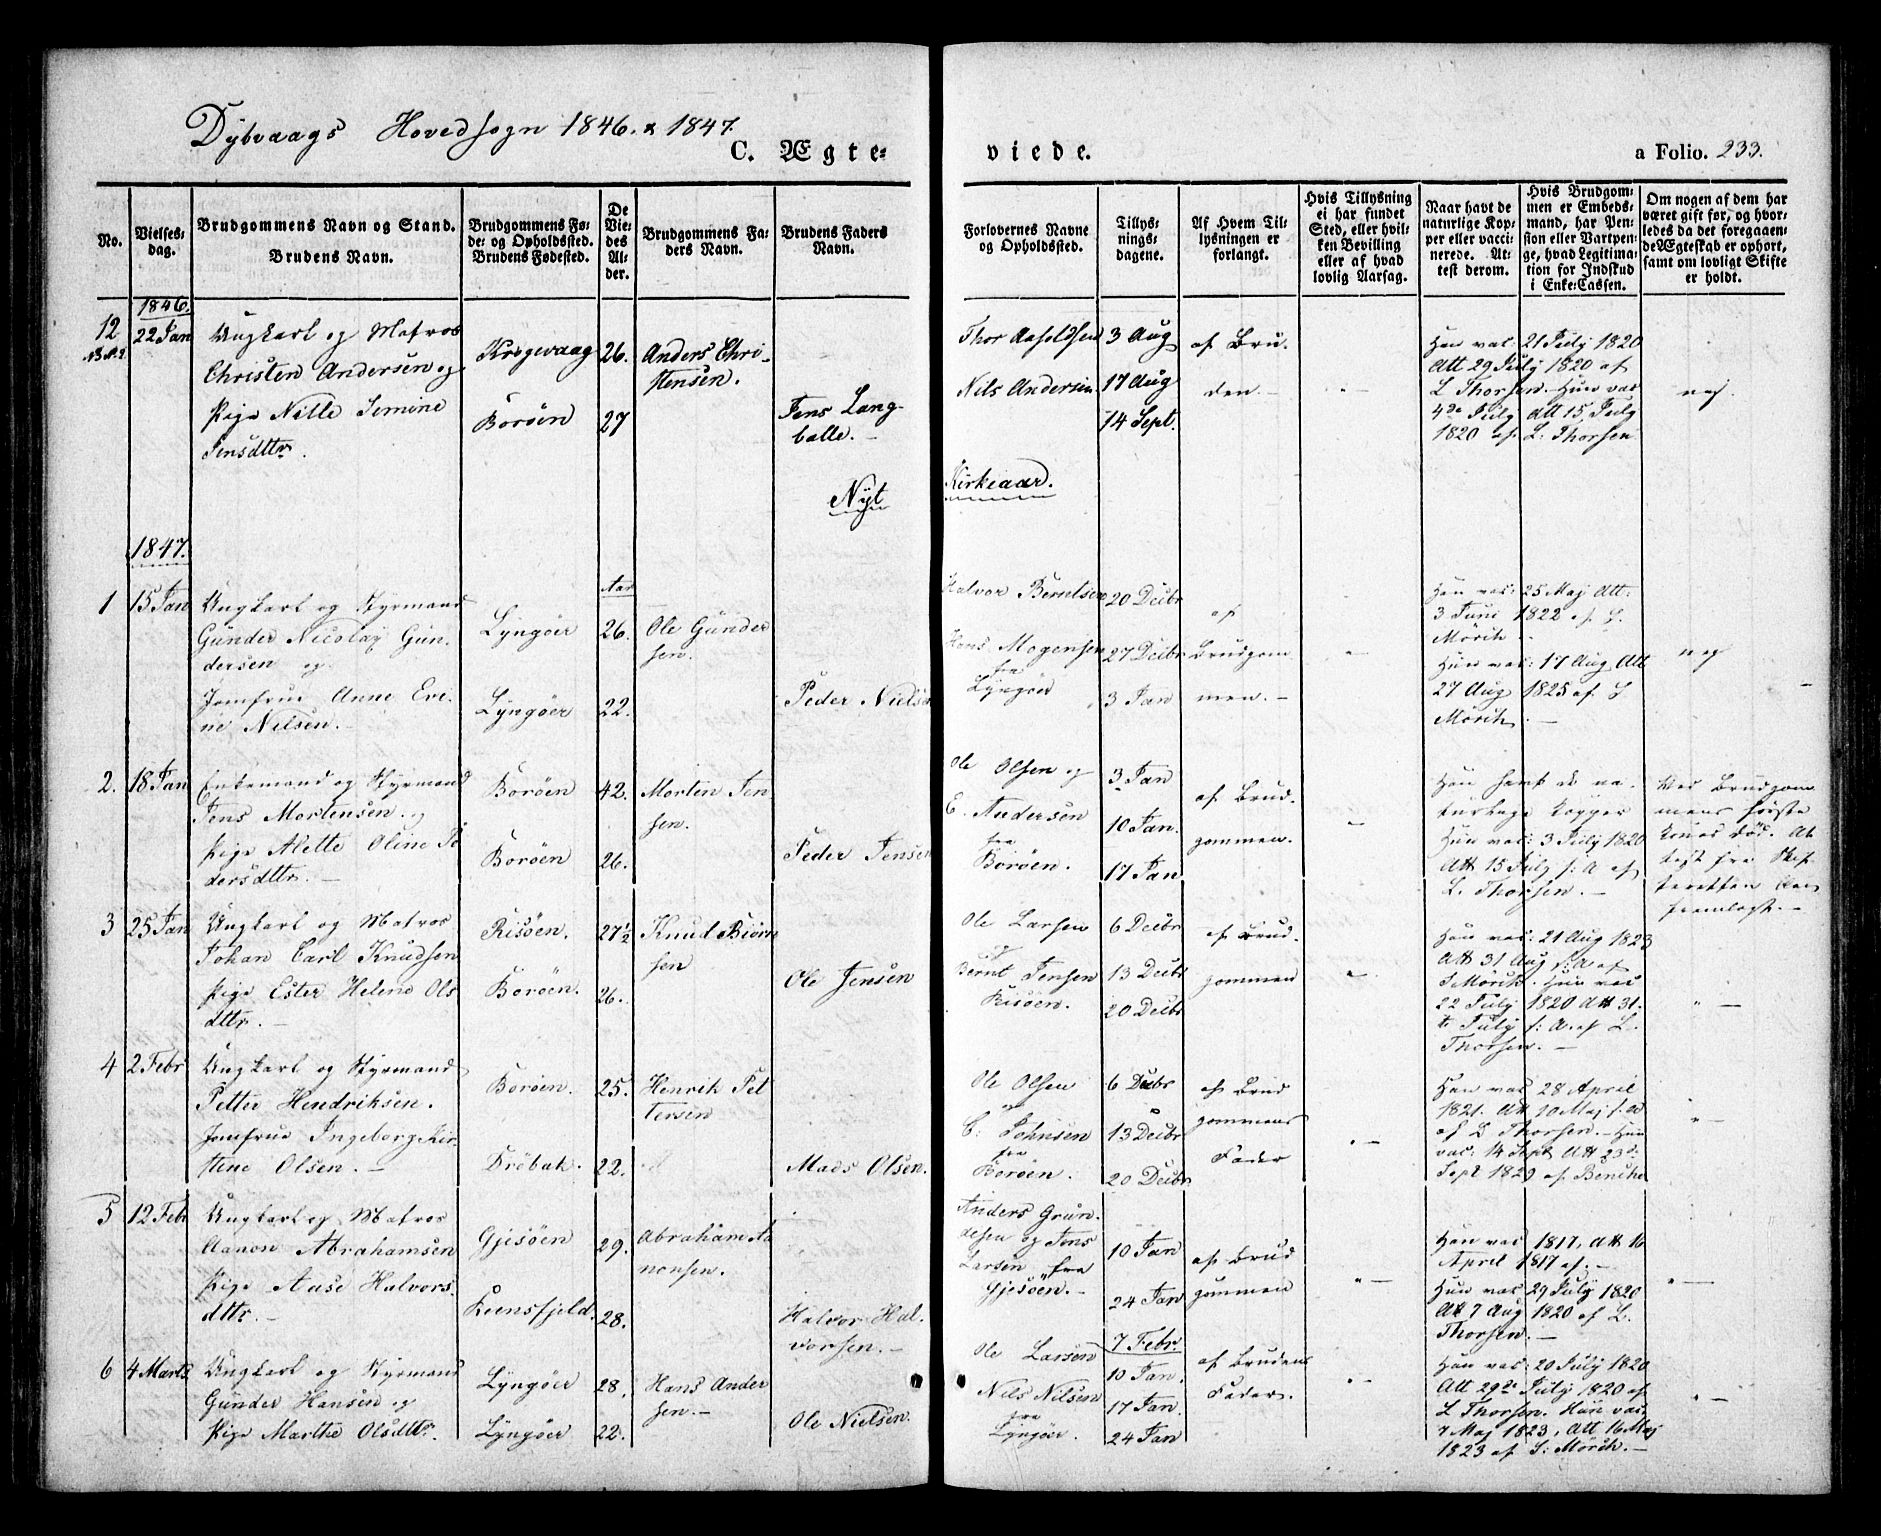 Dybvaags Hovedsogn 1846. & 1847.
C. Ægte-
viede.
a Folio. 233.
No.
Vielses-
dag.
Brudgommens Navn og Stand.
Brudens Navn.
Brudgommens Fø-
de- og Opholdssted.
Brudens Fødested.
De
Vie-
des
Al-
der.
Brudgommens Fa-
ders Navn.
Brudens Faders
Navn.
Forlovernes Navne
og Opholdssted.
Tillys-
nings-
dagene.
Af Hvem Til-
lysningen er
forlangt.
Hvis Tillysning
ei har fundet
Sted, eller hvil-
ken Bevilling
eller af hvad
lovlig Aarsag.
Naar havt de
naturlige Kop-
per eller vacci-
nerede. At-
test derom.
Hvis Brudgom-
men er Embeds-
mand, har Pen-
sion eller Vartpen-
ge, hvad Legitima-
tion for Indskud
i Enke-Cassen.
Om nogen af dem har
været gift før, og hvor-
ledes da det foregaaen-
de Ægteskab er ophørt,
samt om lovligt Skifte
er holdt.
1846.
12
22 Jan
Ungkarl og Matros
Christen Andersen og
Pige Nille Semine
Jensdttr.
Krogevaag
Borøen
26.
27
Anders Chri-
stensen.
Jens Lang-
balle. -
Thor Aasoldsen
Nils Andersen
3 Aug
17 Aug
14 Sept.
af Bru-
den. -
" -
Han vac: 21 July 1820
Att 29 July 1820 af
L Thorsen. Hun vac
4de July Att 15 July
1820 af L. Thorsen
nej.
Nyt
Kirkeaar.
1847.
1
15 Jan
Ungkarl og Styrmand
Gunder Nicolay Gun-
dersen og
Jomfrue Anne Eve-
ne Nilsen.
Lyngøer
Lyngøer
Aar
26.
22.
Ole Gunder
sen.
Peder Nielsen
Halvor Berntsen
Hans Mogensen
fra
Lyngøer
20 Decbr
27 Decbr
3 Jan
af
Brudgom
men. -
" -
Han vac: 25 Maj Att.
3 Juni 1822 af S.
Mörch -
Hun vac: 17 Aug Att
27 Aug 1825 af S
Mörch. -
nej
2.
18 Jan
Enkemand og Styrmand
Jens Mortensen og
Pige Alette Oline Pe
dersdttr. -
Borøen
Borøen
42.
26.
Morten Jen
sen.
Peder Jensen
Ole Olsen og
E. Andersen
fra
Borøen.
3 Jan
10 Jan.
17 Jan
af Brud-
gommen.
" -
Han havt de na-
turlige Kopper
Hun vac: 3 July 1820
Att 15 July s: A af
L. Thorsen. -
Ved Brudgom
mens første
Kones Död. At
test fra Skif
teretten
fremlagt. -
3
25 Jan
Ungkarl og Matros
Johan Carl Knudsen
Pige Ester Helene Ols
dttr. -
Risøen.
Borøen.
27½
26.
Knud Biørn
sen
Ole Jensen
Ole Larsen
og
Bernt Jensen
Risøen.
6 Decbr
13 Decbr
20 Decbr
af Brud-
gommen
" -
Han vac: 21 Aug 1823
Att 31 Aug s: A af
S Mörch. Hun vac
22 July 1820 Att 31.
te July s: A. af L.
Thorsen. -
" -
4
2 Febr
Ungkarl og Styrmand
Petter Hendriksen.
Jomfrue Ingeborg Kir-
stine Olsen. -
Borøen.
Drøbak.
25.
22.
Henrik Pet
tersen
Mads Olsen.
Ole Olsen
og
C. Johnsen
fra
Borøen.
6 Decbr
13 Decbr
20 Decbr
af Brud
gommens
Fader
" -
Han vac 28 April
1821. Att 10 Maj s. A
af L Thorsen. - Hun
vac: 14 Sept Att 23de
Sept 1823 af Benche
" -
5
12 Febr
Ungkarl og Matros
Aanon Abrahamsen
Pige Aase Halvors
dttr. -
Gjesøen
29.
28.
Abraham Aa
nonsen.
Halvor Hal-
vorsen. -
Anders Grun-
desen og Jens
Larsen fra
Gjesøen. -
10 Jan
24 Jan
7 Febr.
af Brud
gommen
" -
Han vac 1817, Att 16
April 1817 af. -
Hun vac: 29 July 1820
Att 7 Aug 1820 af L.
Thorsen. -
" -
6
4 Marts
Ungkarl og Styrmand
Gunder Hansen og
Pige Marthe Olsdttr.
Lyngøer
Lyngøer
28.
22.
Hans Ander
sen. -
Ole Nielsen.
Ole Larsen
Nils Nilsen
fra
Lyngøer.
10 Jan.
17 Jan.
24 Jan
af Brudens
Fader.
" -
Han vac: 20 July 1820
Att 29de July 1820 af
L Thorsen. Hun vac.
7 Maj 1823, Att 16 Maj
1823 af S: Mörch. -
" -